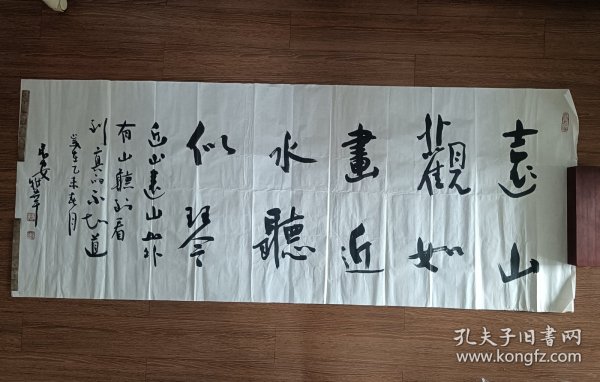 遠山
觀如
畫近
水聽
似琴
近山遠山外
有山聽到看
到真的不知道
歲在乙未春月
長安
孔夫子旧书网
www.kongfz.com